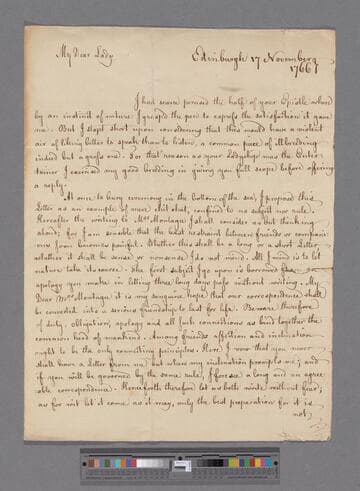 My Dear Lady
Edinburgh 17 November
1766
I had scarce perused the half of your Epistle when
by an instinct of nature I grasped the pen to express the satisfaction it gave
me. But I stopt short upon considering that this would have a violent
air of liking better to speak than to listen, a common piece of ill breeding
indeed but a gross one. For that reason as your Ladyship was the Enter-
tainer I exercised my good breeding in giving you full scope before offering
a reply.
At once to bury ceremony in the bottom of the sea, I propose this
Letter as an example of mere chit chat, confined to no subject nor rule.
Hereafter the writing to Mrs. Montagu I shall consider as but thinking
aloud; for I am sensible that the least restraint between friends or compani-
ons soon becomes painful. Whether this shall be a long or a short Letter,
whether it shall be sense or nonsense I do not mind. All I mind is to let
nature take its course. The first subject I go upon is borrowed from
apology you make in letting three long days pass without writing. My
Dear Mrs. Montagu, it is my sanguine hope that our correspondence shall
be converted into a serious friendship to last for life. Beware therefore
of duty, obligation, apology and all such connections as bind together the
common herd of mankind. Among friends affection and inclination
ought to be the only commanding principles. Here I vow that you never
shall have a Letter from me but when my inclination prompts me; and
if you will be governed by the same rule, I foresee a long and an agree-
able correspondence. Henceforth therefore let us both write without fear,
as for wit let it come as it may, only the best preparation for it is
not,